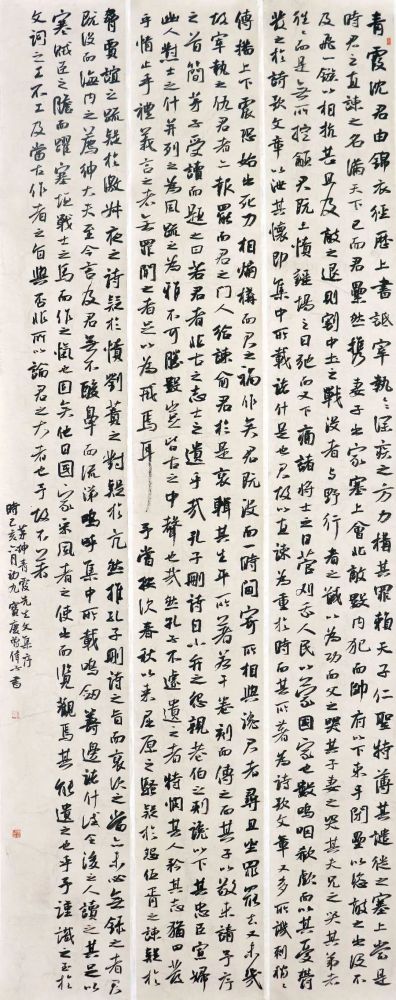 青霞沈君由錦衣經歷上書詆宰執々深疾之方力構其罪賴天子仁聖特薄其譴徙之塞上當是
時君之直諫之名滿天下已而君纍然攜妻子出家塞上會北敵數內犯而帥府以下束手閉壘以恣敵之出沒不
及飛一鏃以相抗甚且及敵之退則割中土之戰沒者與野行者之馘以為功而父之哭其子妻之哭其夫兄之哭其弟者
往々而是無所控籲君既上憤疆埸之日弛而又下痛諸將士之日菅刈我人民以蒙國家也數嗚咽欷歔而以其憂鬱
發於詩歌文章以泄其懷即集中所載諸什是也君故以直諫為重於時而其所著為詩歌文章又多所譏刺稍々
傳播上下震恐始出死力相煽構而君之禍作矣君既沒而一時閫寄所相與讒君者尋且坐罪罷去又未幾
故宰執之仇君者亦報罷而君之門人給諫俞君於是裒輯其生平所著若干卷刻而傳之而其子以敬來請予序
之首簡茅子受讀而題之曰若君者非古之志士之遺乎哉孔子刪詩自小弁之怨親巷伯之刺讒以下其忠臣寡婦
幽人懟士之什並列之為風疏之為雅不可勝數豈皆古之中聲也哉然孔子不遽遺之者特憫其人矜其志猶曰發
乎情止乎禮義言之者無罪聞之者足以為戒焉耳予嘗按次春秋以來屈原之騷疑於怨伍胥之諫疑於
脅賈誼之疏疑於激叔夜之詩疑於憤劉蕡之對疑於亢然推孔子刪詩之旨而裒次之當亦未必無錄之者君
既沒而海內之薦紳大夫至今言及君無不酸鼻而流涕嗚呼集中所載鳴劍籌邊諸什試令後之人讀之其足以
寒賊臣之膽而躍塞垣戰士之馬而作之愾也固矣他日國家采風者之使出而覽觀焉其能遺之也乎予謹識之至於
文詞之工不工及當古作者之旨與否非所以論君之大者也予故不著
茅坤青霞先生文集序
時己亥六月初九寶慶偉書